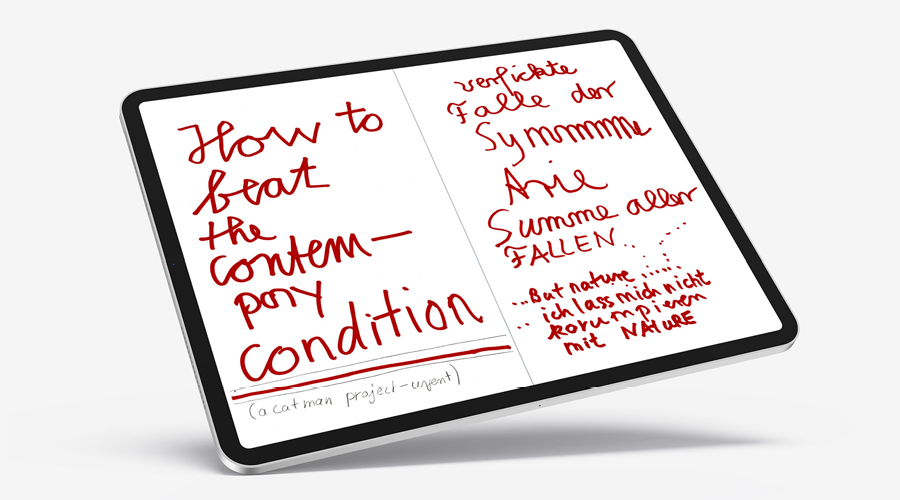 How to
beat
the
contem-
pory
condition
(a catman project-urgent)
verfickte
Falle der
Symmmmme
Arie
Summe aller
FALLEN...
...But nature......
ich lass mich nicht
korumpieren
mit NATURE